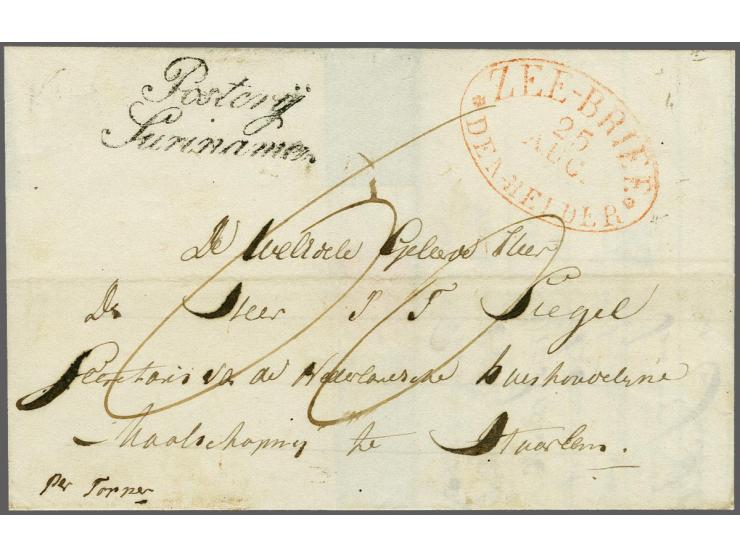 Posterij
Suriname.
ZEE-BRIEF
25
AUG.
DEN-HELDER
De Weledele Geleerde Heer
De Heer J J Siegel
Secretaris van de Nederlandsche huishoudelyke
Maatschappy te Haarlem.
per